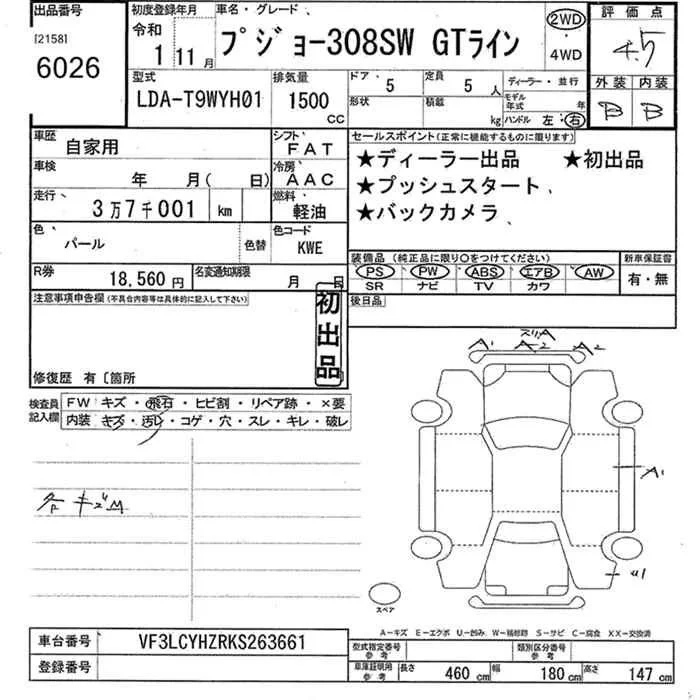 出品番号
[2158]
6026
初度登録年月
令和
1 11 月
車名・グレード
プジョー308SW GTライン
2WD
・
4WD
評価点
4.5
外装 内装
B B
型式
LDA-T9WYH01
排気量
1500
CC
ドア・ 5
定員 5 人
形状
積載 kg
ディーラー・並行
モデル年式 年
ハンドル 左・右
車歴
自家用
シフト
FAT
車検
年 月( 日)
冷房
AAC
走行
3万7千001 km
燃料
軽油
色
パール
色替
色コード
KWE
R券
18,560 円
名変通知期限
月 日
セールスポイント(正常に機能するものに限ります)
★ディーラー出品 ★初出品
★プッシュスタート
★バックカメラ
装備品 (純正品に限り○をつけてください)
新車保証書
PS PW ABS エアB AW
SR ナビ TV カワ
有・無
後日品
注意事項申告欄(不具合内容等は具体的に記入して下さい)
初出品
修復歴 有〔箇所
検査員記入欄
FW キズ・飛石・ヒビ割・リペア跡・×要
内装 キズ・汚レ・コゲ・穴・スレ・キレ・破レ
スリA
A1 A2 A2
A1
U1
スペア
A-キズ E-エクボ U-凹み W-補修跡 S-サビ C-腐食 XX-交換済
車台番号
VF3LCYHZRKS263661
登録番号
型式指定番号
参考
類別区分番号
参考
車庫証明用
参考
長さ 460 cm 幅 180 cm 高さ 147 cm